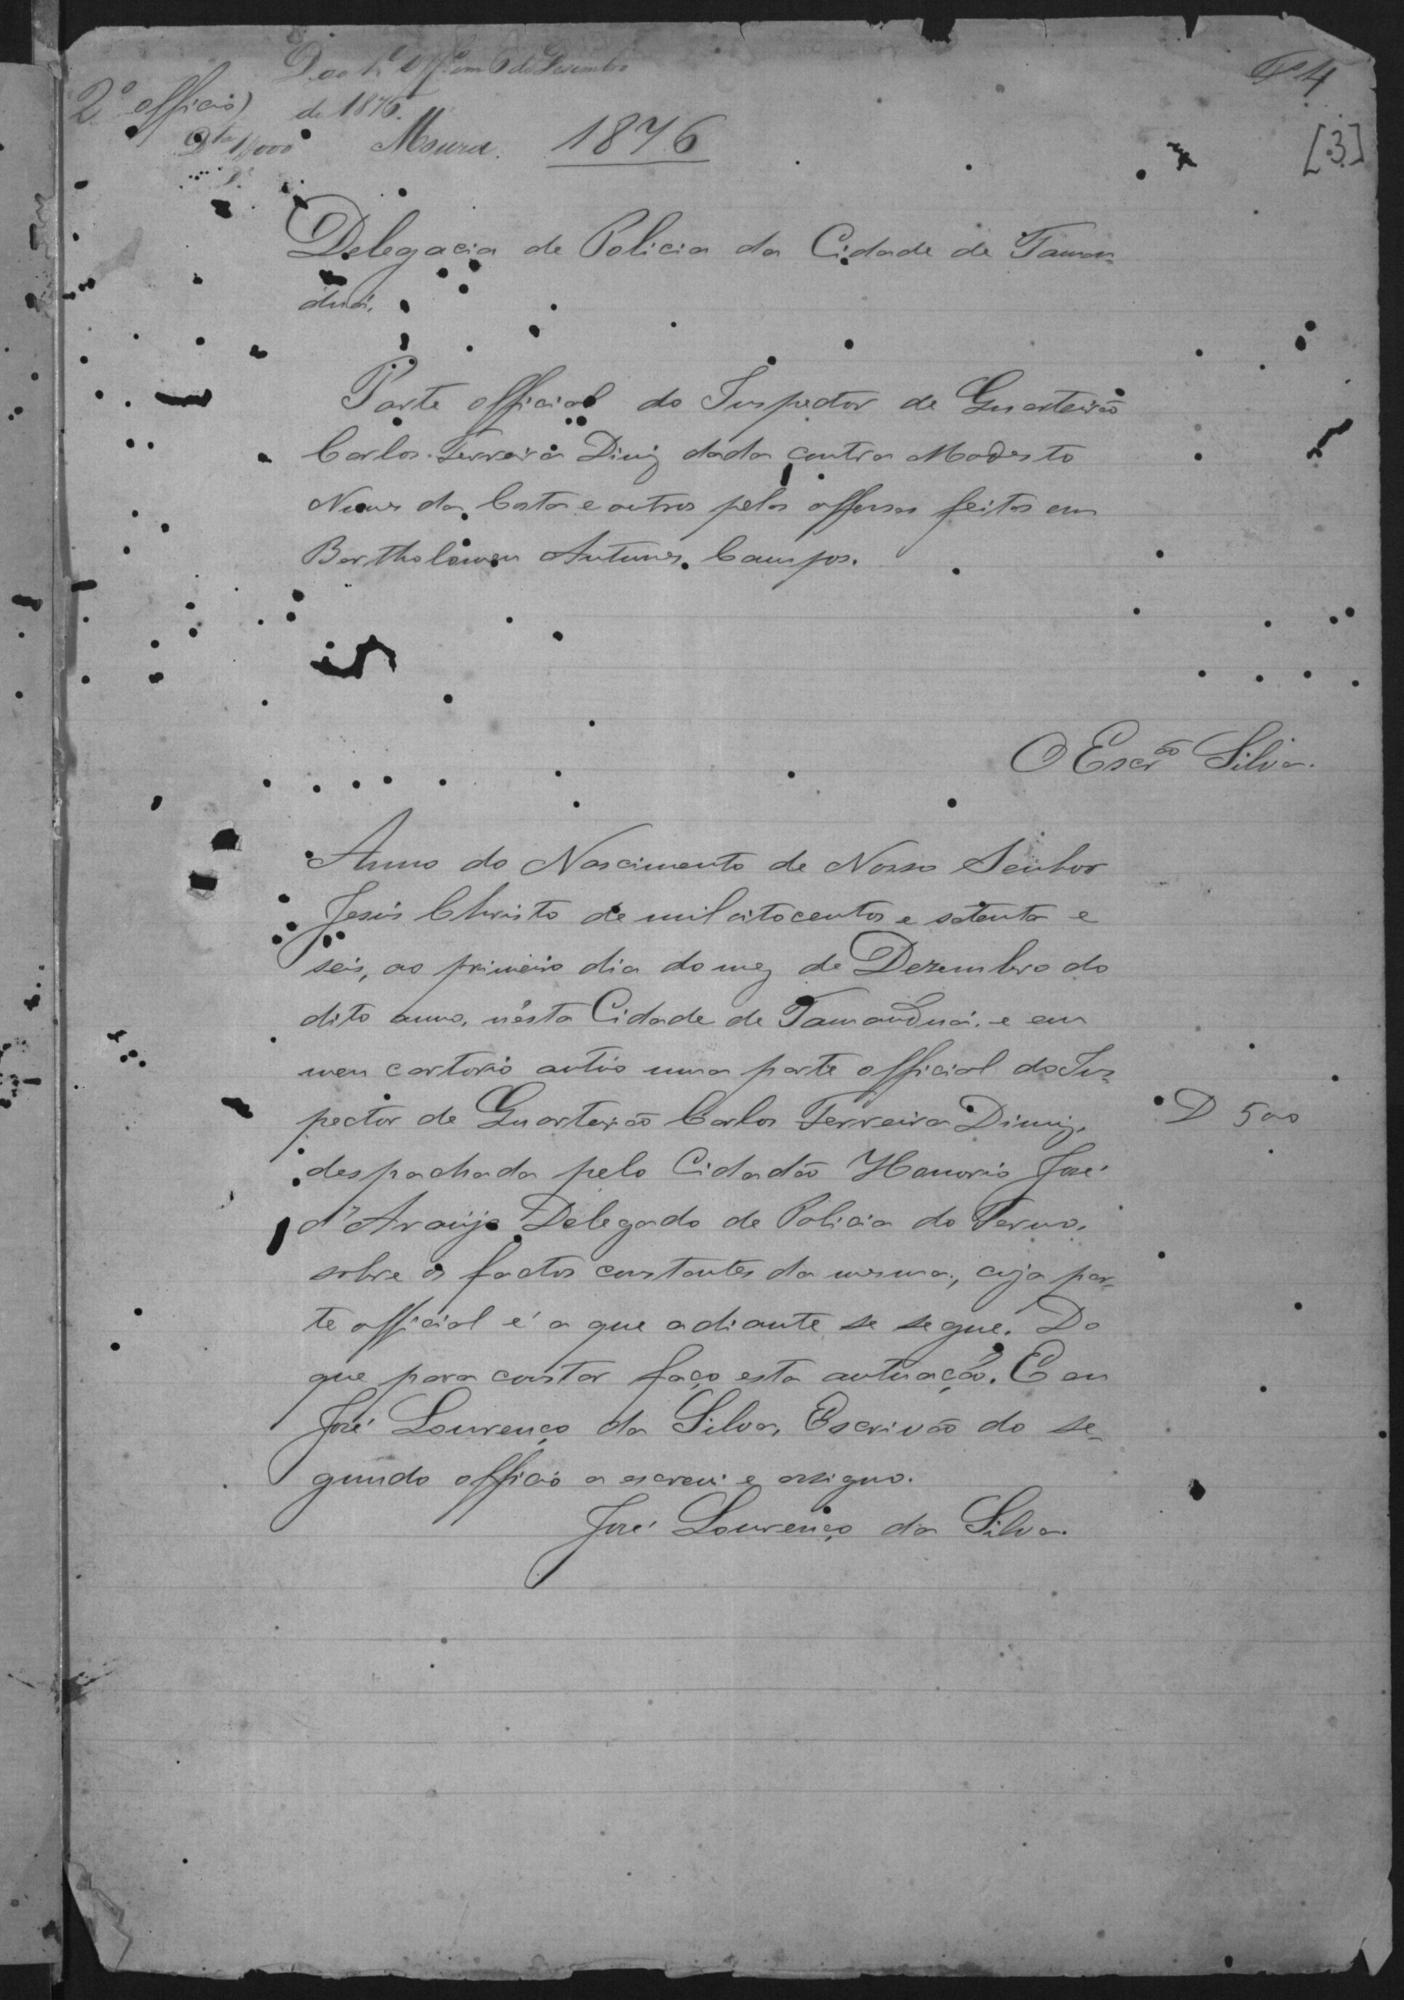 D. ao 1º Off.º em 6 de Dezembro
de 1876.
2º officio)
Dta 1$000
Moura.
1876
4
[3]
Delegacia de Policia da Cidade de Taman-
duá.
Parte official do Inspector de Quarteirão
Carlos Ferreira Diniz dada contra Modesto
Nunes da Costa e outros pelas offensas feitas em
Bartholomeu Antunes Campos.
O Escrᵃᵒ Silva.
Anno do Nascimento de Nosso Senhor
Jesus Christo de mil oitocentos e setenta e
seis, ao primeiro dia do mez de Dezembro do
dito anno, nésta Cidade de Tamanduá, e em
meu cartorio autúo uma parte official do Ins-
pector de Quarteirão Carlos Ferreira Diniz,
D 500
despachada pelo Cidadão Honorio José
d'Araujo Delegado de Policia do Termo,
sobre os factos constantes da mesma, cuja par-
te official é a que adiante se segue. Do
que para constar faço esta autuação. E eu
José Lourenço da Silva, Escrivão do se-
gundo officio a escrevi e assigno.
José Lourenço da Silva.